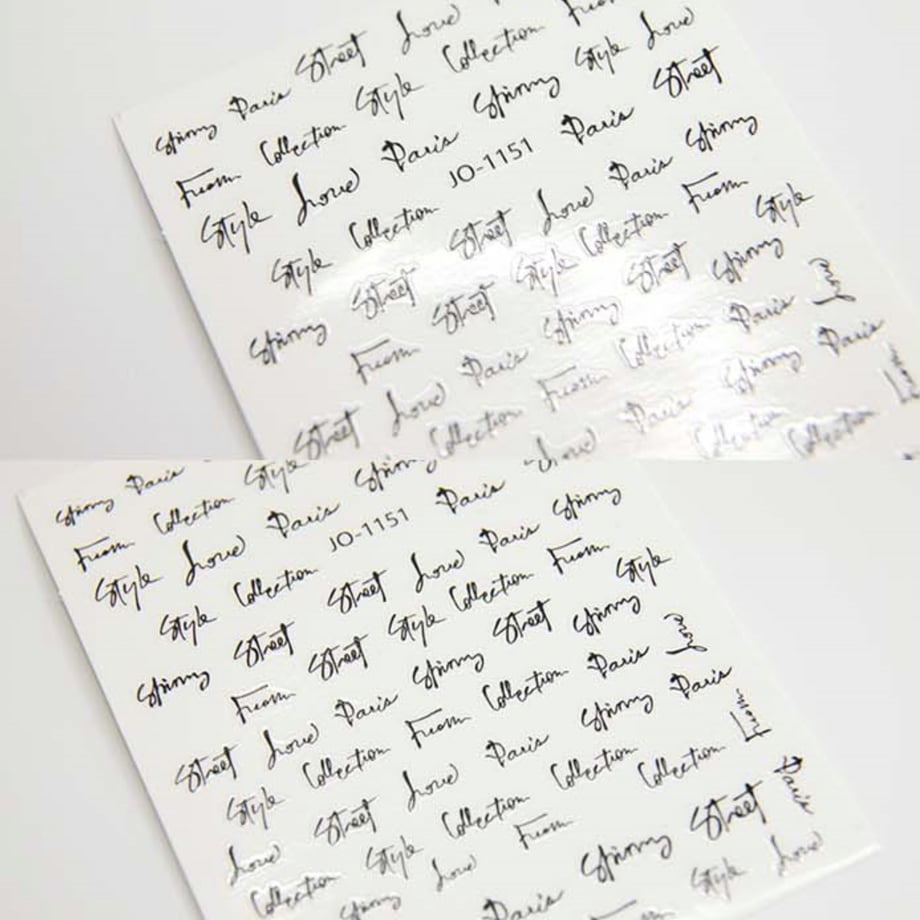 Street Love
Spring Paris Style Collection From
From Collection Spring Style Love
Style Love Paris JO-1151 Paris Street
Style Collection Street Love Paris Spring
Spring Street Style Collection From Style
From Street Spring Street Spring Love
Street Love Paris From Collection Paris
Collection Love Paris Spring Paris From
Collection Collection
Spring Paris Style Spring
From Collection Paris JO-1151 Paris
Style Love Collection Street Love Paris Spring
Style Street Street Style Collection From Style
Spring From Street Spring Street Spring Love
Street Love Paris From Collection Paris
Style Collection Love Paris Spring Paris From
Love Street Collection Collection Collection Paris
Collection Style Love From Spring Street
Spring Paris Style Love